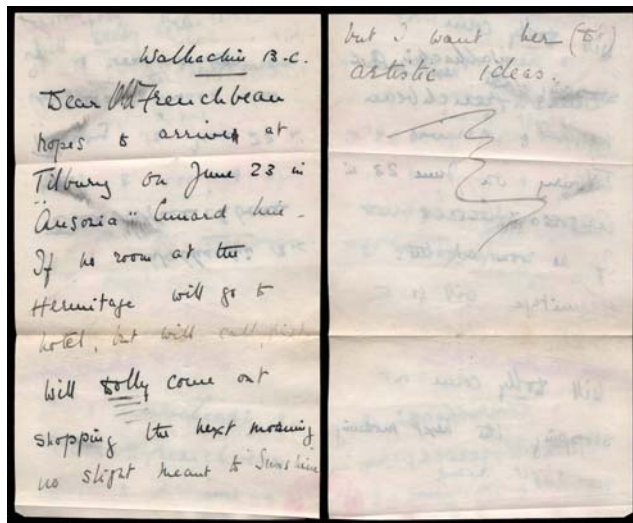 Walhachin B.C.
Dear Old Frenchbean
hopes to arrive at
Tilbury on June 23 in
"Ausonia" Cunard line.
If no room at the
Hermitage will go to
hotel, but will call first
Will Dolly come out
shopping the next morning
no slight meant to Sunshine
but I want her (D's)
artistic ideas.